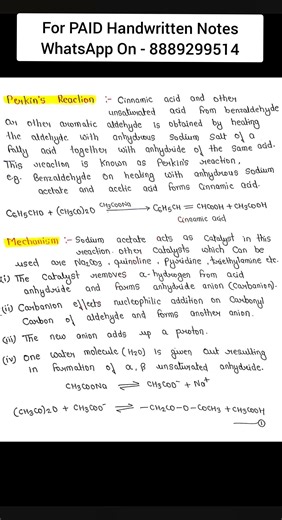 For PAID Handwritten Notes
WhatsApp On - 8889299514
Perkin's Reaction :- Cinnamic acid and other
unsaturated acid from benzaldehyde
or other aromatic aldehyde is obtained by heating
the aldehyde with anhydrous sodium salt of a
fatty acid together with anhydride of the same acid.
This reaction is known as Perkin's reaction,
e.g. Benzaldehyde on heating with anhydrous sodium
acetate and acetic acid forms Cinnamic acid.
C6H5CHO + (CH3CO)2O CH3COONa→ C6H5CH = CHCOOH + CH3COOH
Cinnamic acid
Mechanism :- Sodium acetate acts as catalyst in this
reaction. other catalysts which can be
used are Na2CO3, quinoline, Pyridine, triethylamine etc.
(i) The Catalyst removes α-hydrogen from acid
anhydride and forms anhydride anion (Carbanion).
(ii) Carbanion effects nucleophilic addition on Carbonyl
Carbon of aldehyde and forms another anion.
(iii) The new anion adds up a proton.
(iv) One water molecule (H2O) is given out resulting
in formation of α, β unsaturated anhydride.
CH3COONa ⇌ CH3COO⁻ + Na⁺
(CH3CO)2O + CH3COO⁻ ⇌ -CH2CO-O-COCH3 + CH3COOH
①